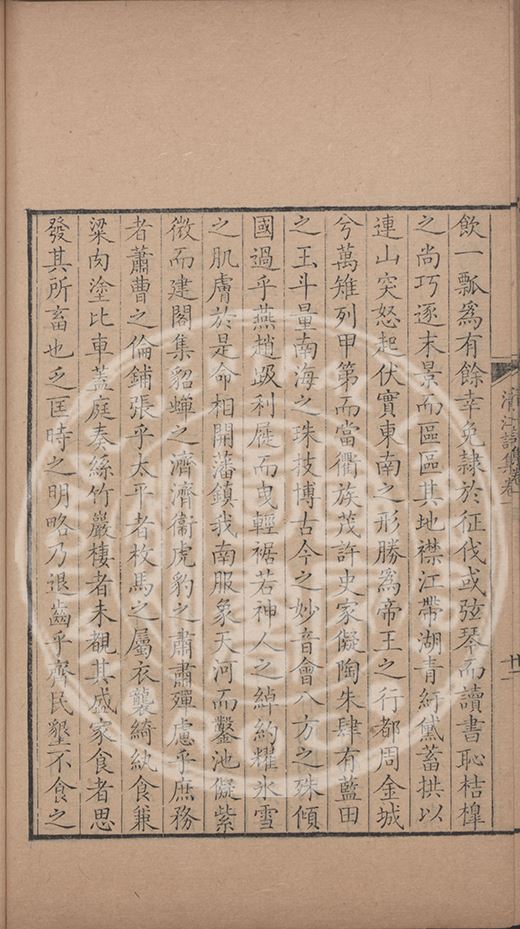 飲一瓢爲有餘幸免隸於征伐或弦琴而讀書恥桔槹
之尚巧逐末景而區區其地襟江帶湖青紆黛蓄拱以
連山突怒起伏實東南之形勝爲帝王之行都周金城
兮萬雉列甲第而當衢族茂許史家儗陶朱肆有藍田
之玉斗量南海之珠技博古今之妙音會八方之殊傾
國過乎燕趙跋利屣而曳輕裾若神人之綽約耀氷雪
之肌膚於是命相開藩鎮我南服象天河而鑿池儗紫
微而建閣集貂蟬之濟濟衞虎豹之肅肅殫慮乎庶務
者蕭曹之倫鋪張乎太平者枚馬之屬衣襲綺紈食兼
粱肉塗比車蓋庭奏絲竹巖棲者未覩其盛家食者思
發其所畜也乏匡時之明略乃退齒乎齊民墾不食之
清江詩集卷一
廿一